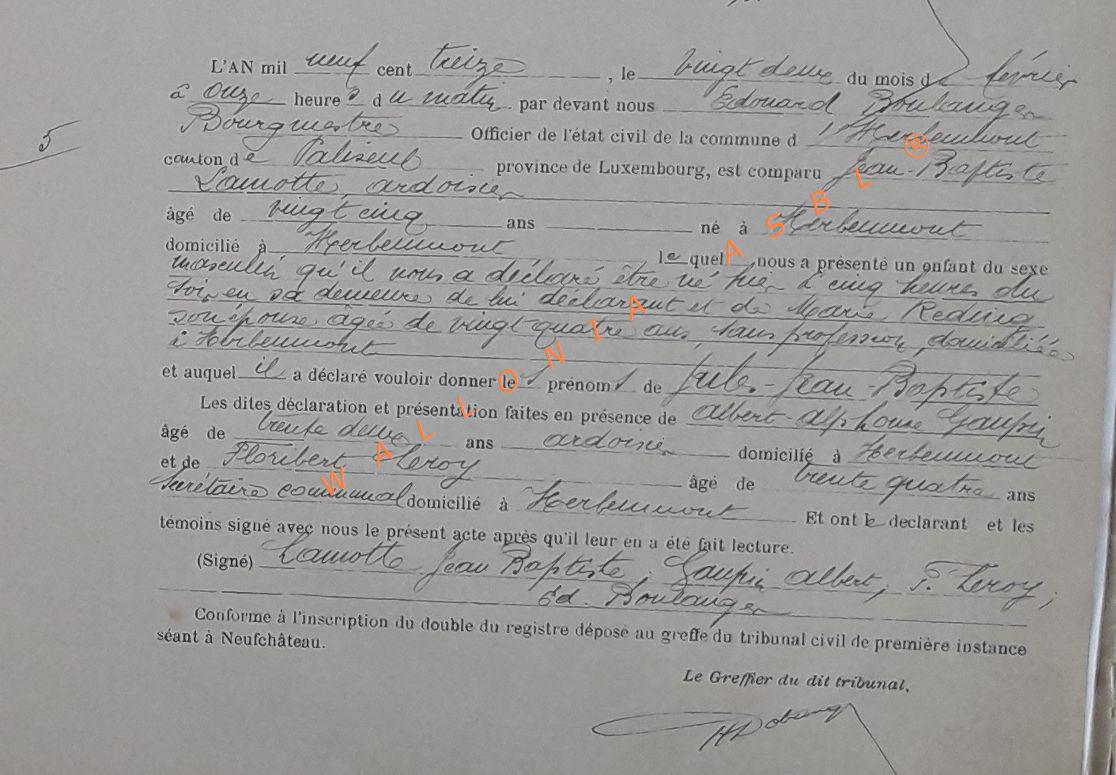 L'AN mil neuf cent treize , le vingt deux du mois de février
à onze heures du matin par devant nous Edouard Boulanger
Bourgmestre Officier de l'état civil de la commune d'Herbeumont
5
canton de Paliseul province de Luxembourg, est comparu Jean-Baptiste
Lamotte, ardoisier
âgé de vingt cinq ans né à Herbeumont
domicilié à Herbeumont lequel nous a présenté un enfant du sexe
masculin qu'il nous a déclaré être né hier à cinq heures du
soir en sa demeure de lui déclarant et de Marie Reding
son épouse, âgée de vingt quatre ans, sans profession, domiciliée
à Herbeumont
et auquel il a déclaré vouloir donner les prénoms de Jules-Jean-Baptiste
Les dites déclaration et présentation faites en présence de Albert-Alphonse Gaupin
âgé de trente deux ans ardoisier domicilié à Herbeumont
et de Floribert Leroy âgé de trente quatre ans
Secrétaire communal domicilié à Herbeumont Et ont le declarant et les
témoins signé avec nous le présent acte après qu'il leur en a été fait lecture.
(Signé) Lamotte Jean Baptiste ; Gaupin Albert ; F. Leroy ;
Ed. Boulanger
Conforme à l'inscription du double du registre déposé au greffe du tribunal civil de première instance
séant à Neufchâteau.
Le Greffier du dit tribunal,
WALLONIA ASBL ®